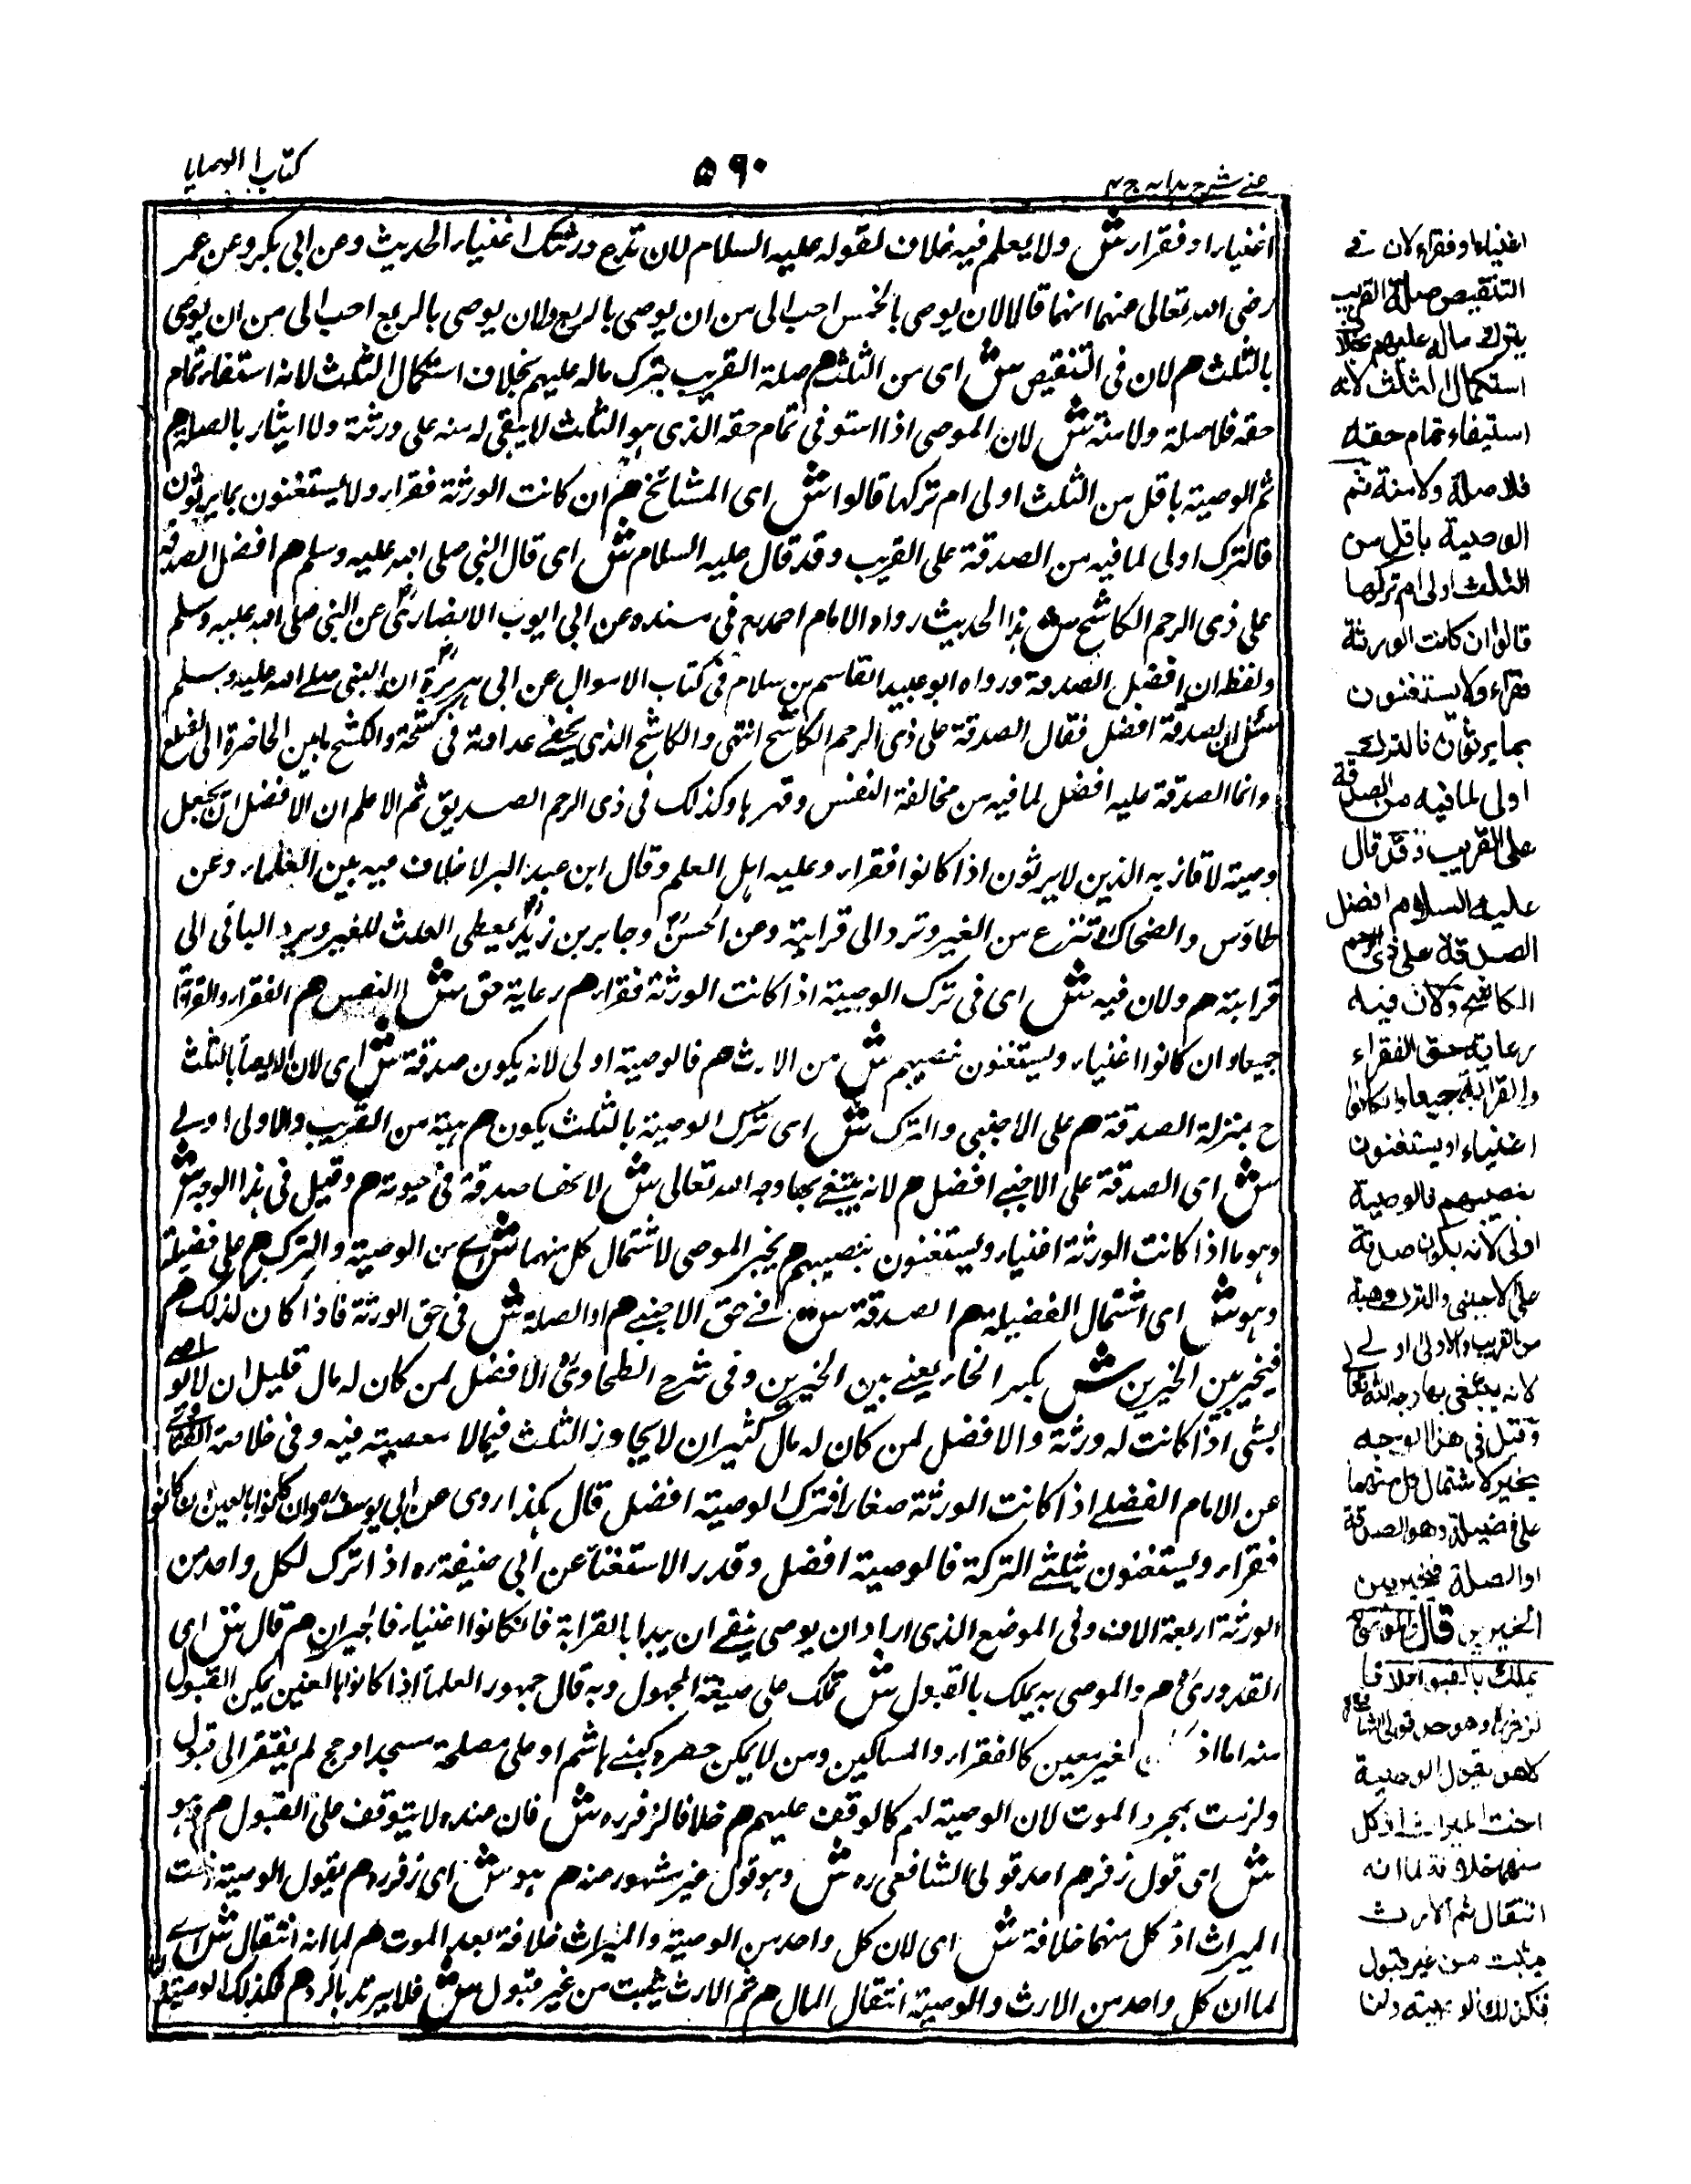 كتاب الوصايا
۵۹۰
عينى شرح هدايه ج ۴
اغنياء او فقراء ش ولا يعلم فيه خلاف لقوله عليه السلام لان تدع ورثتك اغنياء الحديث وعن ابى بكر وعن عمر
رضى الله تعالى عنهما انهما قالا لان يوصى بالخمس احب الى من ان يوصى بالربع ولان يوصى بالربع احب الى من ان يوصى
بالثلث هم لان فى التنقيص ش اى من الثلث هم صلة القريب بترك ماله عليهم بخلاف استكمال الثلث لانه استيفاء تمام
حقه فلا صلة ولا منة ش لان الموصى اذا استوفى تمام حقه الذى هو الثلث لا يبقى له منه على ورثته ولا ايثار بالصلة هم
ثم الوصية باقل من الثلث اولى ام تركها قالوا ش اى المشائخ هم ان كانت الورثة فقراء ولا يستغنون بما يرثون
فالترك اولى لما فيه من الصدقة على القريب وقد قال عليه السلام ش اى قال النبى صلى الله عليه وسلم هم افضل الصدقة
على ذى الرحم الكاشح ش هذا الحديث رواه الامام احمد رح فى مسنده عن ابى ايوب الانصارى رض عن النبى صلى الله عليه وسلم
ولفظه ان افضل الصدقة ورواه ابو عبيد القاسم بن سلام فى كتاب الاموال عن ابى هريرة رض ان النبى صلے الله عليه وسلم
سئل اى الصدقة افضل فقال الصدقة على ذى الرحم الكاشح انتهى والكاشح الذى يخفے عداوته فى كشحه والكشح ما بين الخاصرة الى الضلع
وانما الصدقة عليه افضل لما فيه من مخالفة النفس وقهرها وكذلك فى ذى الرحم الصديق ثم الاعلم ان الافضل ان يجعل
وصيته لاقاربه الذين لا يرثون اذا كانوا فقراء وعليه اهل العلم وقال ابن عبد البر لا خلاف فيه بين العلماء وعن
طاؤس والضحاك تنزع من الغير وترد الى قرابته وعن الحسن وجابر بن زيد يعطى الثلث للغير ويرد الباقى الى
قرابته هم ولان فيه ش اى فى ترك الوصية اذا كانت الورثة فقراء هم رعاية حق ش النفس هم الفقراء والقرابة
جميعا وان كانوا اغنياء ويستغنون بنصيبهم ش من الارث هم فالوصية اولى لانه يكون صدقة ش اى لان الايصاء بالثلث
ح بمنزلة الصدقة هم على الاجنبى والترك ش اى ترك الوصية بالثلث يكون هم هبة من القريب والاولى اولى
ش اى الصدقة على الاجنبے افضل هم لانه يبتغے بها وجه الله تعالى ش لانها صدقة فى حيوته هم وقيل فى هذا الوجه ش
وهو ما اذا كانت الورثة اغنياء ويستغنون بنصيبهم هم يخير الموصى لاشتمال كل منهما ش اے من الوصية والترك هم على فضيلة
وهو ش اى اشتمال الفضيلة هم الصدقة ش فے حق الاجنبے هم او الصلة ش فى حق الورثة فاذا كان كذلك هم
فيخير بين الخيرين ش بكسر الخاء يعنے بين الخيرين وفى شرح الطحاوى الافضل لمن كان له مال قليل ان لا يوصے
بشى اذا كانت له ورثة والافضل لمن كان له مال كثير ان لا يجاوز الثلث فيما لا معصية فيه وفى خلاصة الفتاوے
عن الامام الفضلے اذا كانت الورثة صغارا فترك الوصية افضل قال هكذا روى عن ابى يوسف ره وان كانوا بالغين ان كانوا
فقراء ويستغنون بثلثے التركة فالوصية افضل وقدر الاستغناء عن ابى حنيفة ره اذا ترك لكل واحد من
الورثة اربعة الاف وفى الموضع الذى اراد ان يوصى ينبغے ان يبدا بالقرابة فان كانوا اغنياء فالجيران هم قال ش اى
القدورى هم والموصى به يملك بالقبول ش تملك على صيغة المجهول وبه قال جمهور العلماء اذا كانوا بالمعنين يمكن القبول
منه اما اذ لغير معين كالفقراء والمساكين ومن لا يمكن حصره كبنے هاشم او على مصلحة مسجد او حج لم يفتقر الى قبول
ولزمت بمجرد الموت لان الوصية لهم كالوقف عليهم هم خلافا لزفر ره ش فان عنده لا يتوقف على القبول هم وهو
ش اى قول زفر هم احد قولى الشافعى ره ش وهو قول غير مشهور منه هم هو ش اى زفر ره هم يقول الوصية اخت
الميراث اذ كل منهما خلافة ش اى لان كل واحد من الوصية والميراث خلافة بعد الموت هم لما انه انتقال ش اے
لما ان كل واحد من الارث والوصية انتقال المال هم ثم الارث يثبت من غير قبول ش فلا يرتد بالرد هم فكذلك الوصية
اغنياء او فقراء لان فے
التنقيص صلة القريب
بترك ماله عليهم بخلاف
استكمال الثلث لانه
استيفاء تمام حقه
فلا صلة ولا منة ثم
الوصية باقل من
الثلث اولى ام تركها
قالوا ان كانت الورثة
فقراء ولا يستغنون
بما يرثون فالترك
اولى لما فيه من الصدقة
على القريب وقد قال
عليه السلام افضل
الصدقة على ذى الرحم
الكاشح ولان فيه
رعاية حق الفقراء
والقرابة جميعا وان كانوا
اغنياء او يستغنون
بنصيبهم فالوصية
اولى لانه يكون صدقة
على الاجنبى والترك هبة
من القريب والاولى اولے
لانه يبتغى بها وجه الله تعالى
وقيل فى هذا الوجه
يخير لاشتمال كل منهما
على فضيلة وهو الصدقة
او الصلة فيخير بين
الخيرين قال والموصى به
يملك بالقبول خلافا
لزفر وهو احد قولى الشافعى
هو يقول الوصية
اخت الميراث اذ كل
منهما خلافة لما انه
انتقال ثم الارث
يثبت من غير قبول
فكذلك الوصية ولنا